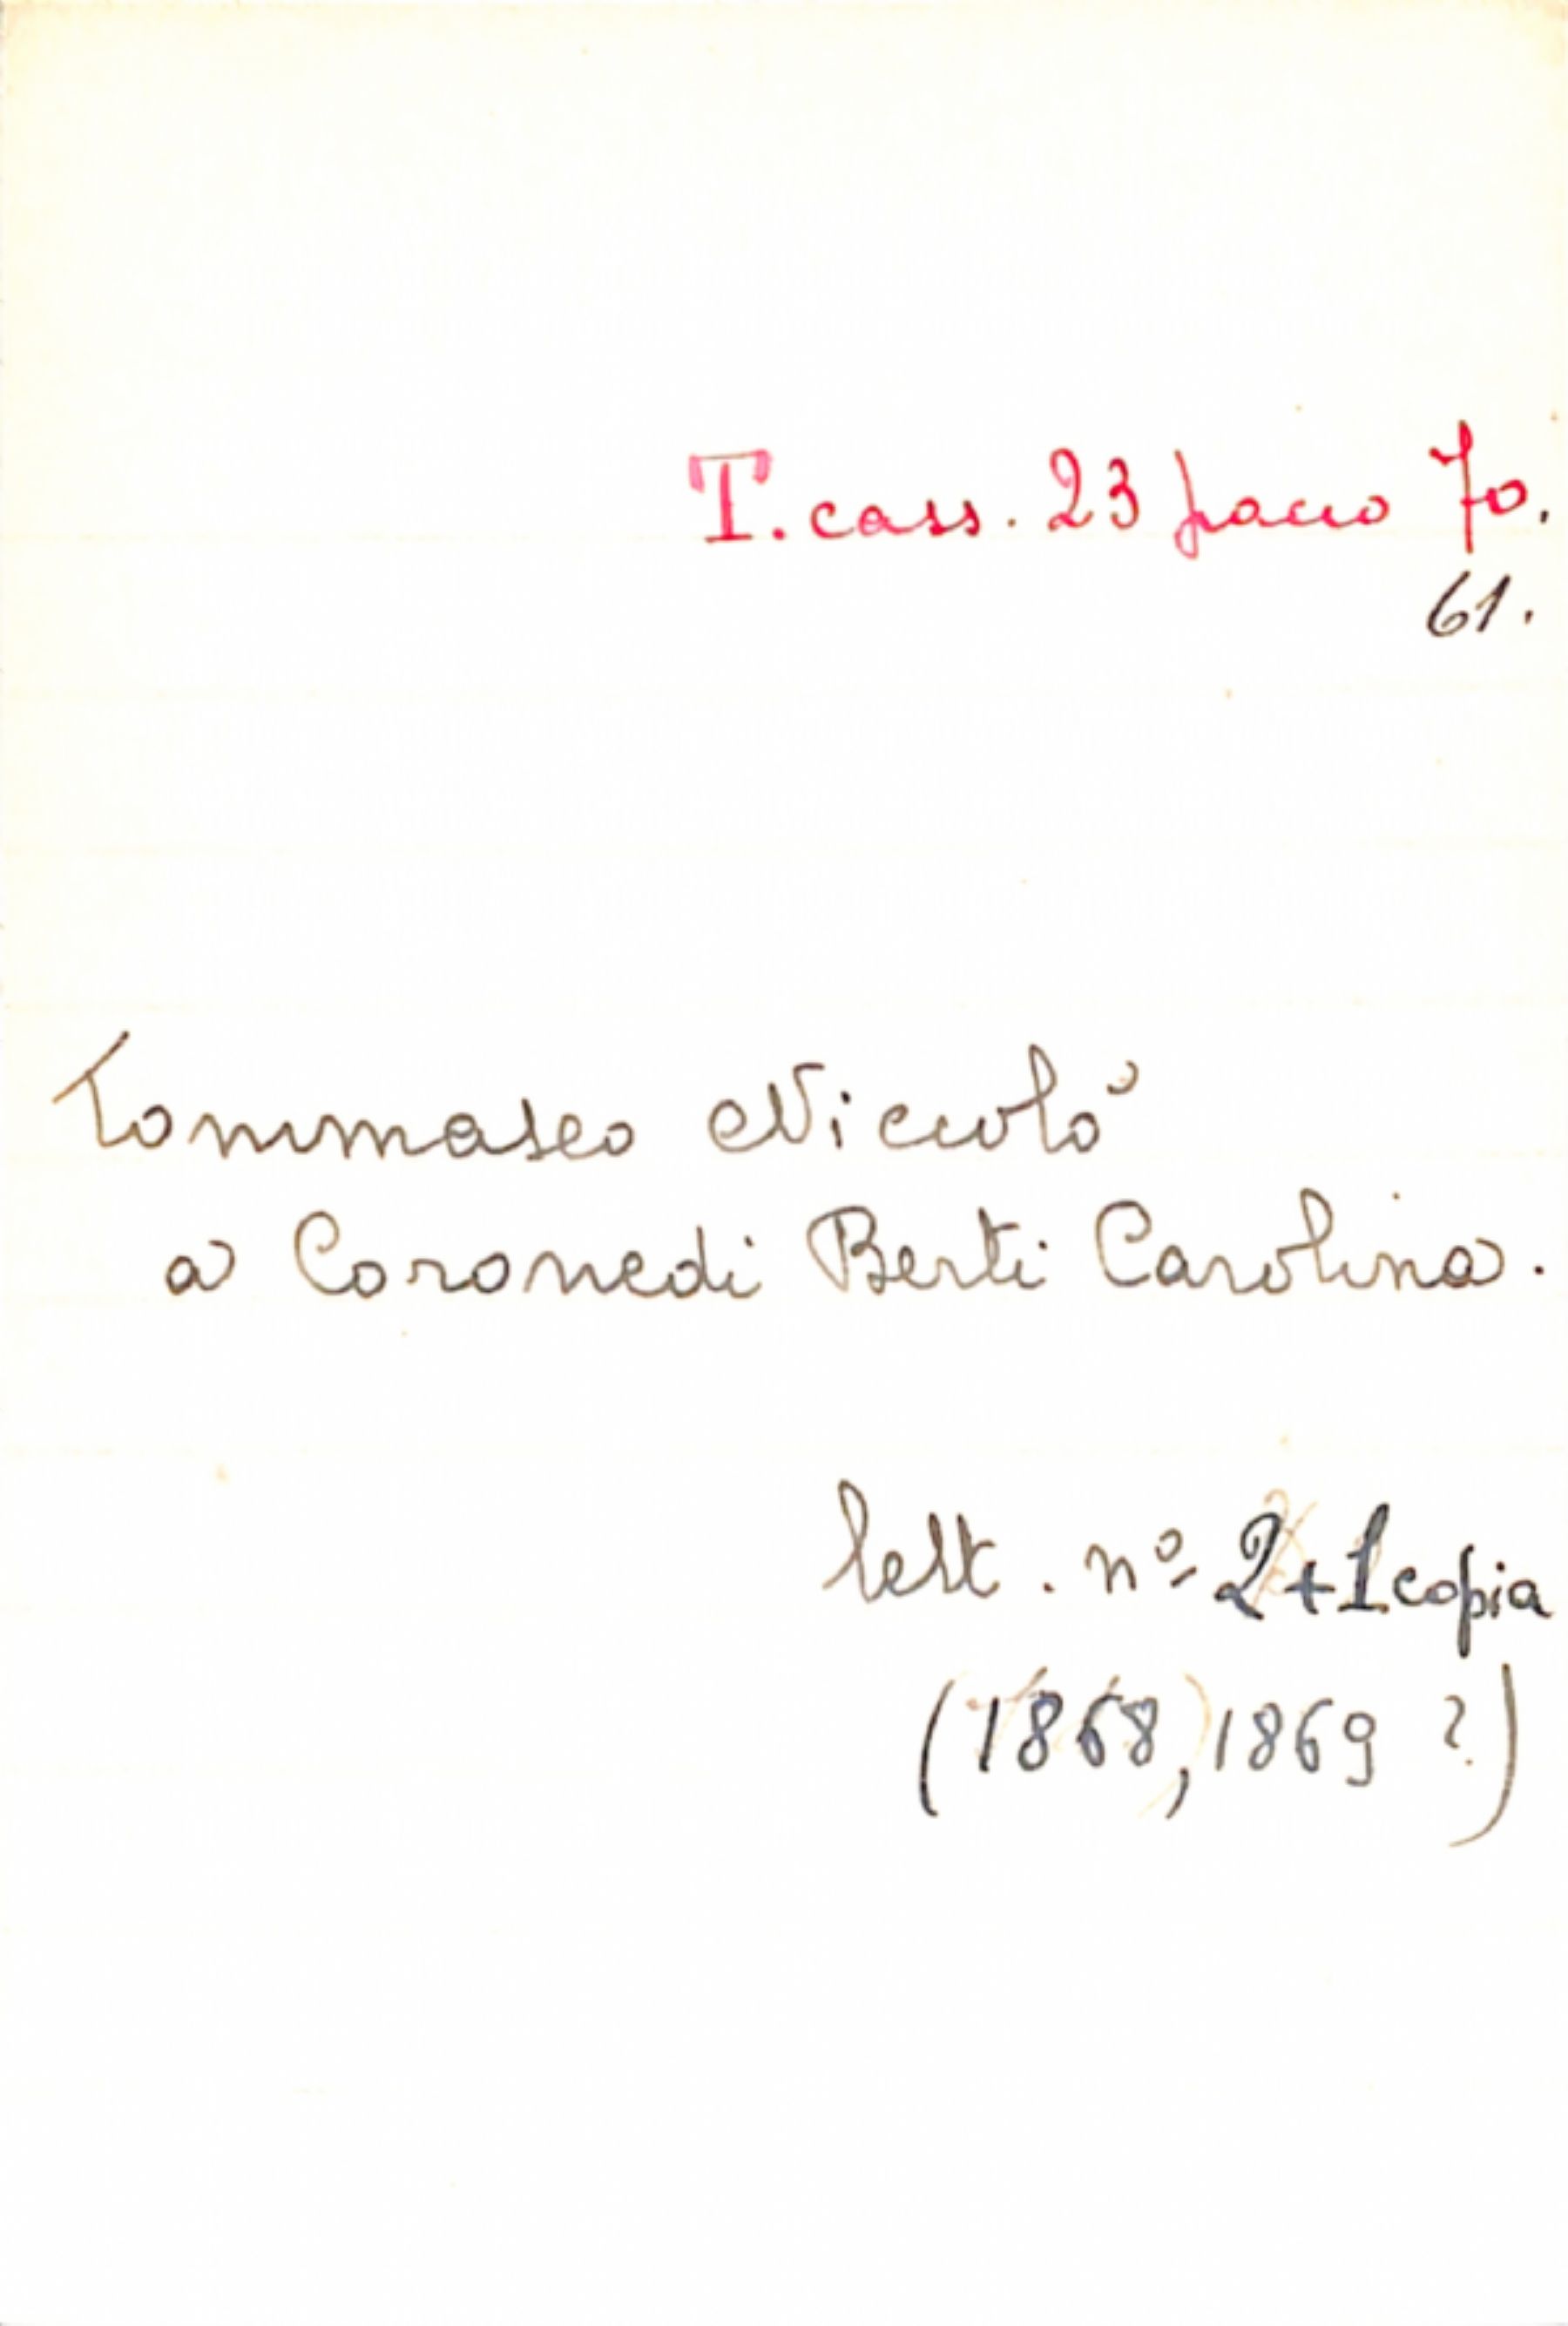 T. cass. 23 pacco 70.
61.
Tommaseo Niccolò
a Coronedi Berti Carolina.
lett. nº 2+1 copia
(1868, 1869 ?)